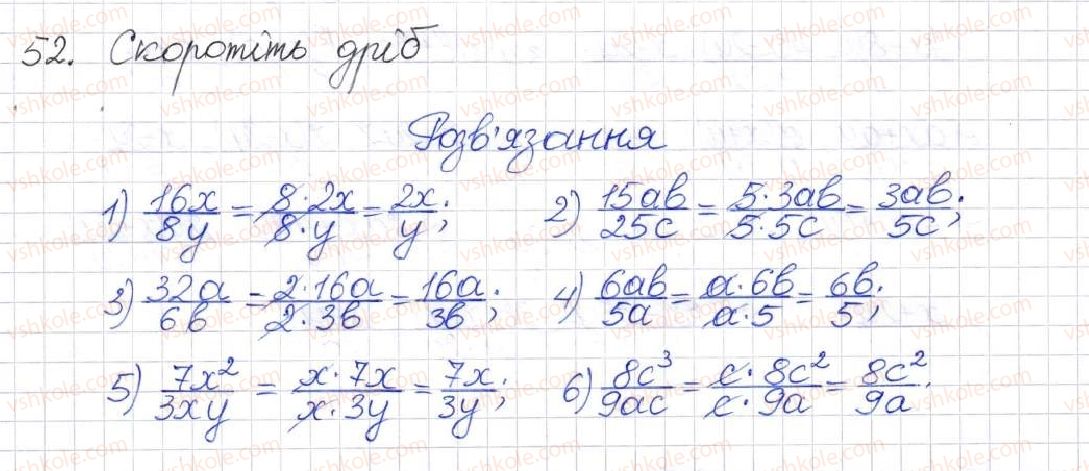 52. Скоротіть дріб
Розв'язання
1) 16x/8y = 8·2x/8·y = 2x/y; 2) 15ab/25c = 5·3ab/5·5c = 3ab/5c;
3) 32a/6b = 2·16a/2·3b = 16a/3b; 4) 6ab/5a = a·6b/a·5 = 6b/5;
5) 7x²/3xy = x·7x/x·3y = 7x/3y; 6) 8c³/9ac = c·8c²/c·9a = 8c²/9a.